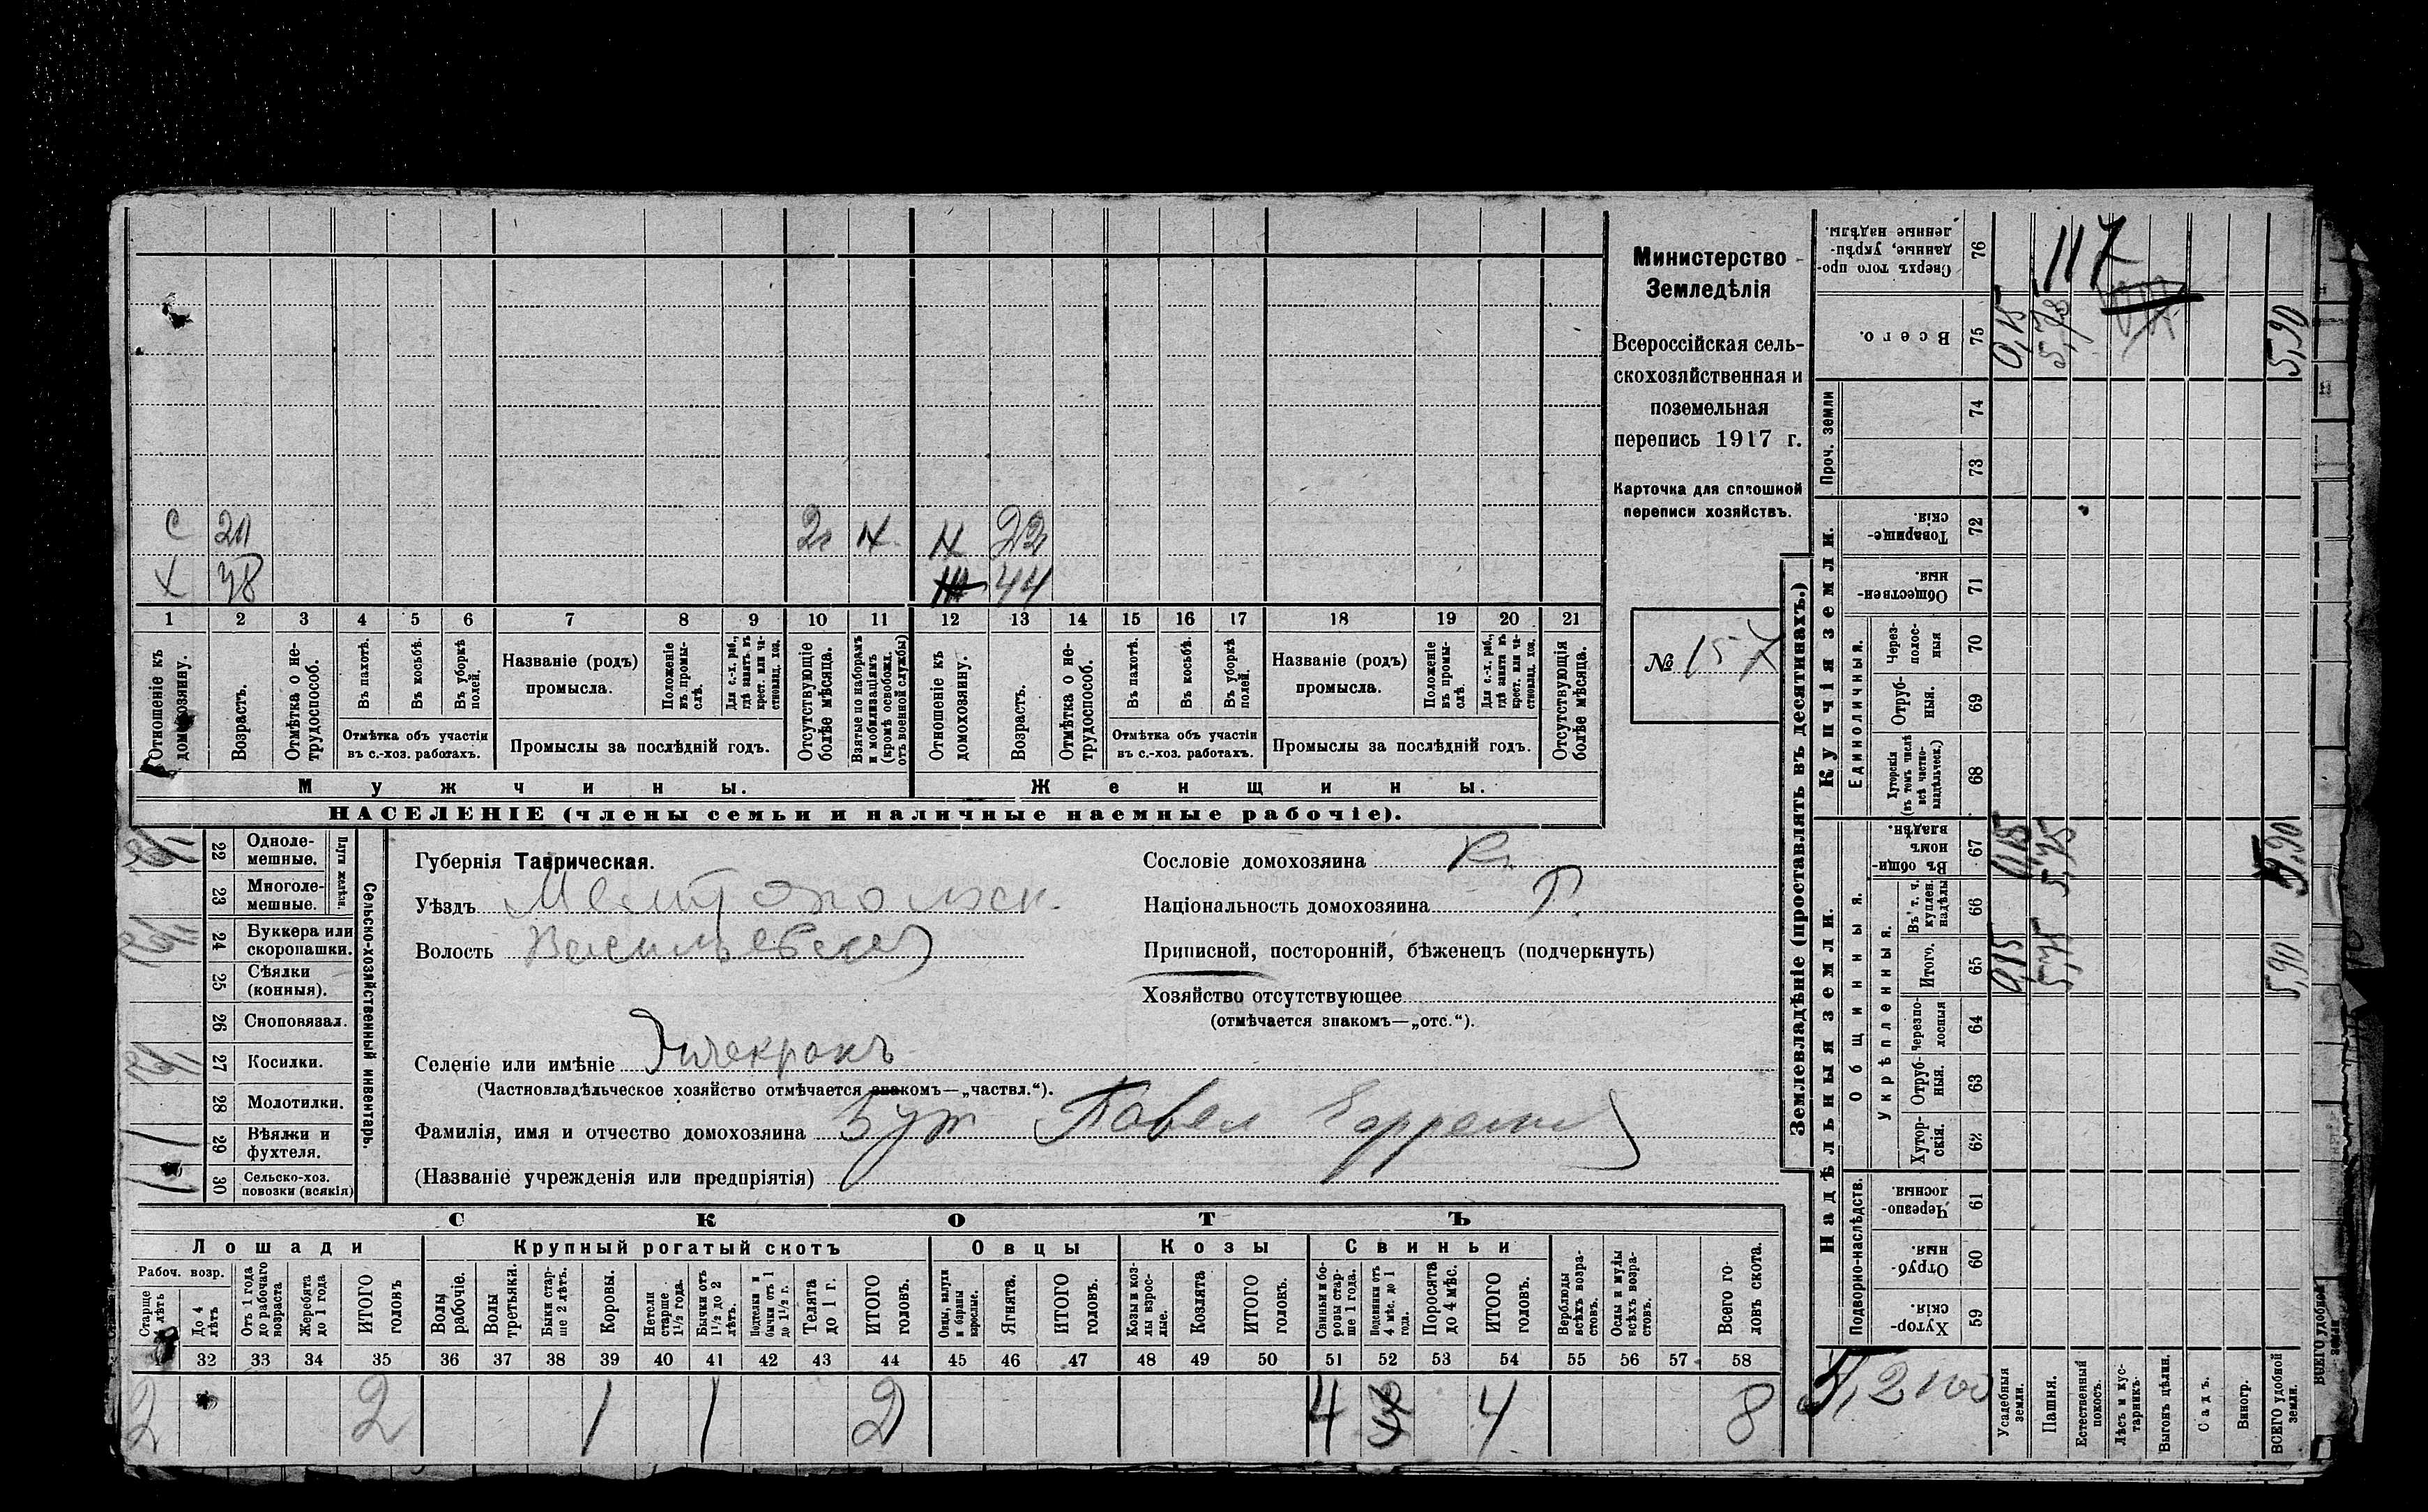 С 21 2 Н Н 22
Х 48 44
1 2 3 4 5 6 7 8 9 10 11 12 13 14 15 16 17 18 19 20 21
Отношеніе къ домохозяину.
Возрастъ.
Отмѣтка о не-трудоспособ.
Въ пахотѣ.
Въ косьбѣ.
Въ уборкѣ полей.
Отмѣтка объ участіи
въ с.-хоз. работахъ.
Названіе (родъ)
промысла.
Положеніе въ промы-слѣ.
Для с.-х. раб., гдѣ занятъ въ крест. или ча-стновлад. хоз.
Промыслы за послѣдній годъ.
Отсутствующіе болѣе мѣсяца.
Взятые по наборамъ и мобилизаціямъ (кромѣ освобожд. отъ военной службы)
Отношеніе къ домохозяину.
Возрастъ.
Отмѣтка о не-трудоспособ.
Въ пахотѣ.
Въ косьбѣ.
Въ уборкѣ полей.
Отмѣтка объ участіи
въ с.-хоз. работахъ.
Названіе (родъ)
промысла.
Положеніе въ промы-слѣ.
Для с.-х. раб., гдѣ занятъ въ крест. или ча-стновлад. хоз.
Промыслы за послѣдній годъ.
Отсутствующія болѣе мѣсяца.
Мужчины. Женщины.
НАСЕЛЕНІЕ (члены семьи и наличные наемные рабочіе).
Министерство
Земледѣлія
Всероссійская сель-
скохозяйственная и
поземельная
перепись 1917 г.
Карточка для сплошной
переписи хозяйствъ.
№ 157
22 Одноле-мешные.
23 Многоле-мешные.
Плуги желѣзн.
24 Буккера или скоропашки.
25 Сѣялки (конныя).
26 Сноповязал.
27 Косилки.
28 Молотилки.
29 Вѣялки и фухтеля. 1
30 Сельско-хоз. повозки (всякія) 1
Сельско-хозяйственный инвентарь.
Губернія Таврическая.
Уѣздъ Мелитопольск.
Волость Васильевская
Селеніе или имѣніе
(Частновладѣльческое хозяйство отмѣчается знакомъ—„частвл.“).
Фамилія, имя и отчество домохозяина Павел
(Названіе учрежденія или предпріятія)
Сословіе домохозяина Кр.
Національность домохозяина
Приписной, посторонній, бѣженецъ (подчеркнуть)
Хозяйство отсутствующее
(отмѣчается знакомъ—„отс.“).
СКОТЪ
Лошади Крупный рогатый скотъ Овцы Козы Свиньи
Рабоч. возр.
Старше 4 лѣтъ
До 4 лѣтъ
Отъ 1 года до рабочаго возраста
Жеребята до 1 года
ИТОГО головъ
Волы рабочіе.
Волы третьяки.
Быки стар-ше 2 лѣтъ.
Коровы.
Нетели старше 1½ года.
Бычки отъ 1½ до 2 лѣтъ.
Подтелки и бычки отъ 1 до 1½ г.
Телята до 1 г.
ИТОГО головъ.
Овцы, валухи и бараны взрослые.
Ягнята.
ИТОГО головъ.
Козы и коз-лы взрос-лые.
Козлята
ИТОГО головъ.
Свиньи и бо-ровы стар-ше 1 года.
Подсвинки отъ 4 мѣс. до 1 года.
Поросята до 4 мѣс.
ИТОГО головъ.
Верблюды всѣхъ возра-стовъ.
Ослы и мулы всѣхъ возра-стовъ.
Всего го-ловъ скота.
32 33 34 35 36 37 38 39 40 41 42 43 44 45 46 47 48 49 50 51 52 53 54 55 56 57 58
2 2 1 1 2 4 4 8
Землевладѣніе (проставлять въ десятинахъ.)
Надѣльныя земли. Купчія земли. Проч. земли
Подворно-наслѣдств. Общинныя. Единоличныя.
Укрѣпленныя.
Хутор-скія. 59
Отруб-ныя. 60
Черезпо-лосныя. 61
Хутор-скія. 62
Отруб-ныя. 63
Черезпо-лосныя 64
Итого. 65
Въ т. ч. куплен. надѣлы 66
Въ общи-номъ владѣн. 67
Хуторскія (въ томъ числѣ всѣ частно-владѣльческ.) 68
Отруб-ныя. 69
Через-полос-ныя 70
Обществен-ныя. 71
Товарище-скія. 72
73
74
Всего. 75
Сверхъ того про-данные, укрѣп-ленные надѣлы. 76
117
Усадебныя земли. 0,15 0,15 0,15
Пашня. 5,75 5,75 5,75
Естественный покосъ.
Лѣсъ и кус-тарникъ.
Выгонъ цѣлин.
Садъ.
Виногр.
ВСЕГО удобной земли. 5,90 5,90 5,90
ВСЕГО удобной земли